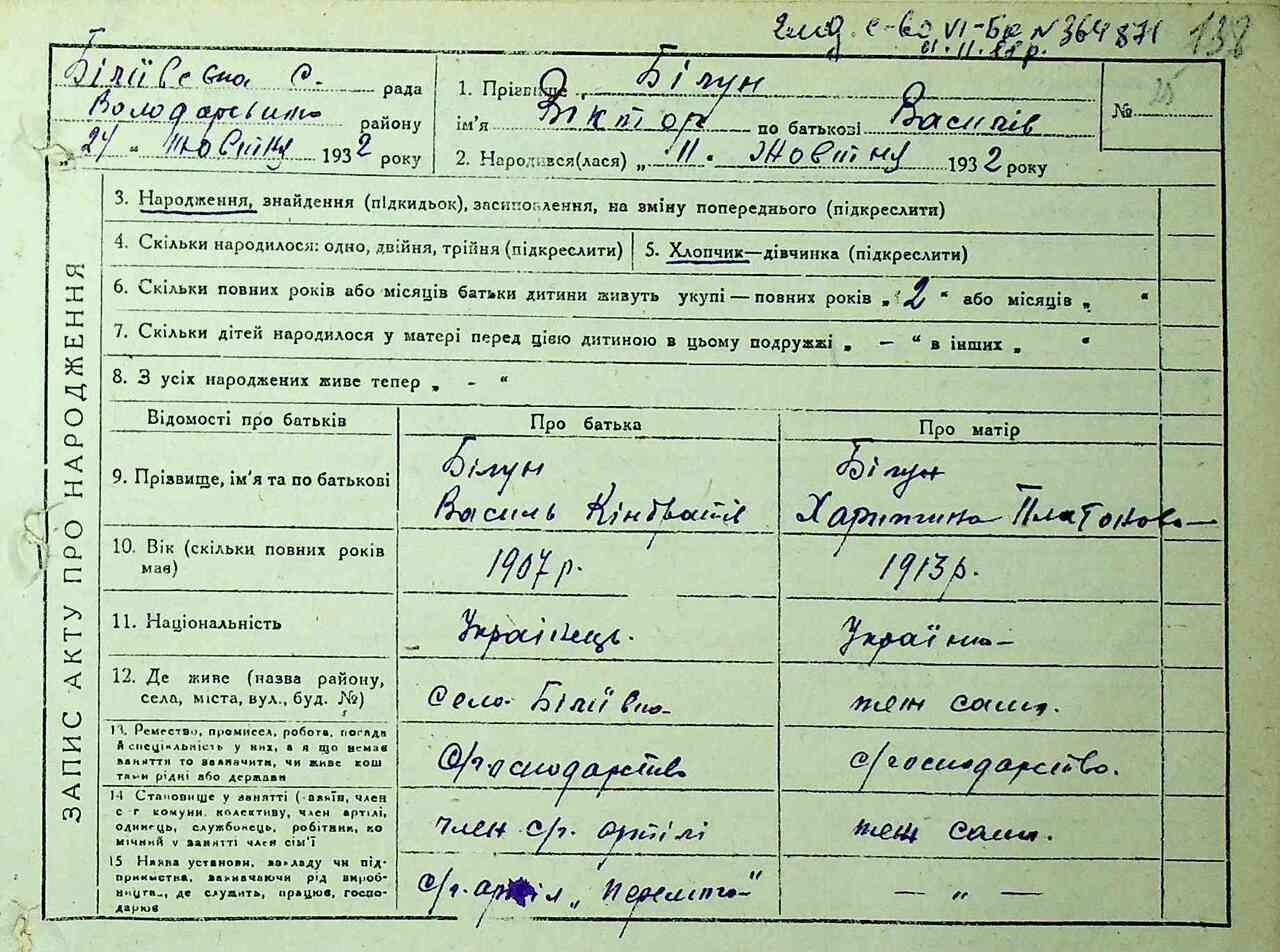 с-во VI-Бк N 364871
138
Біліївська С. рада
Володарського району
„ 24 “ жовтня 1932 року
1. Прізвище Білун
ім'я Віктор по батькові Василів
2. Народився(лася) „ 11. жовтня 1932 року
№ 25
ЗАПИС АКТУ ПРО НАРОДЖЕННЯ
3. Народження, знайдення (підкидьок), засиновлення, на зміну попереднього (підкреслити)
4. Скільки народилося: одно, двійня, трійня (підкреслити)
5. Хлопчик—дівчинка (підкреслити)
6. Скільки повних років або місяців батьки дитини живуть укупі — повних років „ 2 “ або місяців „ “
7. Скільки дітей народилося у матері перед цією дитиною в цьому подружжі „ — “ в інших „ “
8. З усіх народжених живе тепер „ - “
Відомості про батьків
Про батька
Про матір
9. Прізвище, ім'я та по батькові
Білун
Василь Кіндратів
Білун
Харитина Платонова
10. Вік (скільки повних років
мав)
1907 р.
1913 р.
11. Національність
Українець.
Українка
12. Де живе (назва району,
села, міста, вул., буд. №)
село Біліївка
теж сама.
13. Ремество, промисел, робота, посада
й спеціяльність у них, а я що немає
заняття то зазначити, чи живе кош
тами рідні або держави
с/господарство
с/господарство.
14 Становище у занятті (хазяїн, член
с г комуни, колективу, член артілі,
одинець, службовець, робітник, по
мічний у занятті член сім'ї
член с/г. артілі
теж сама.
15 Назва установи, закладу чи під-
приємства, зазначаючи рід вироб-
ництва, де служить, працює, госпо-
дарює
с/г. артіл „Перемога“
— „ —